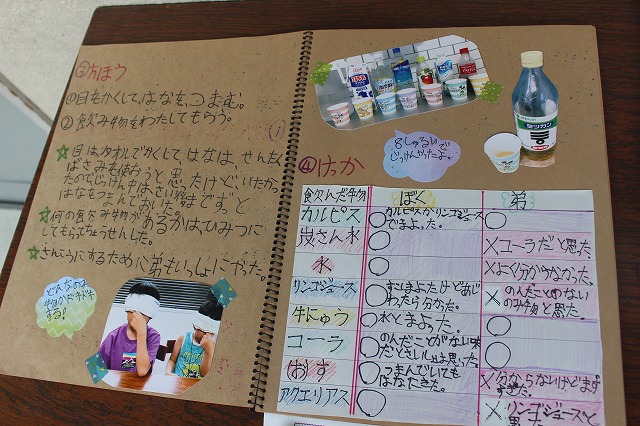 ③方ほう
①目をかくして、はなをつまむ。
②飲み物をわたしてもらう。
目は、タオルでかくして、はなは、せんたく
ばさみを使おうと思ったけど、いたか
ったのでじっけん中は、さい後まですっと
はなをつまんでおいた。
何の飲み物があるかは、ひみつに
してもらってちょうせんした。
さんこうにするために弟もいっしょにやった。
どんなのみ
物かドキドキ
する!
8しゅるいで
じっけんやったよ。
ミツカン
④けっか
飲んだ物 ぼく 弟
カルピス ○カルピスかリンゴジュース
でまよった。 ○
炭さん水 ○ ×コーラだと思った。
水 ○ ×よく分からなかった。
リンゴジュース ○すこしまよったけどあじ
わったら分かった。 ×のんだことのない
のみ物と思った。
牛にゅう ○水とまよった。 ○
コーラ ○のんだことがない味
だとさいしょは思った。 ○
おす ○つまんでいても
はなにきた。 ×分からないけどまず
すぎた。
アクエリアス ○ ×リンゴジュースと
思った。